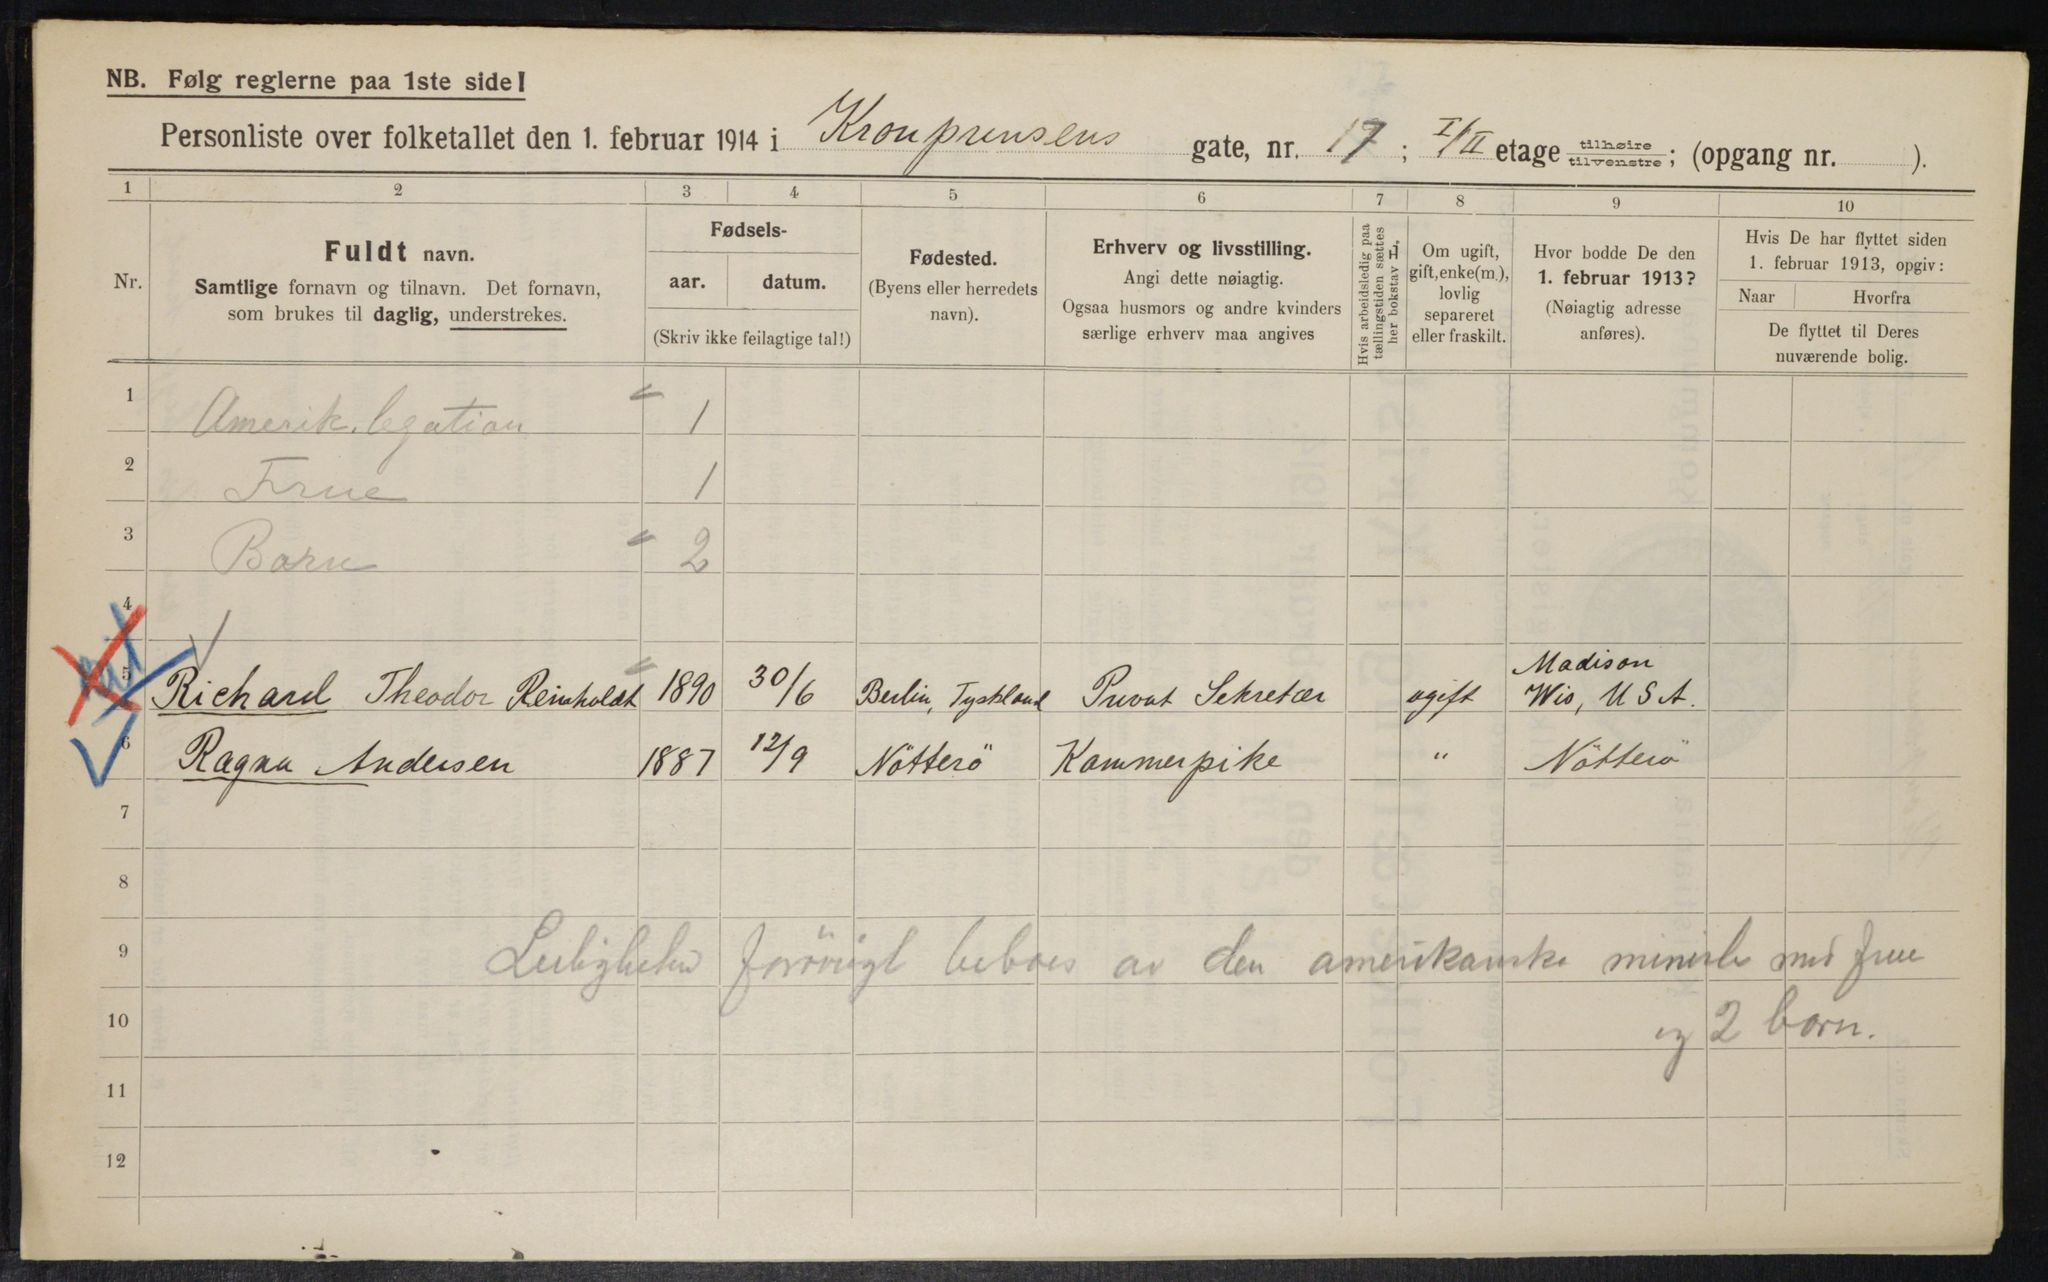 NB. Følg reglerne paa 1ste side!
Personliste over folketallet den 1. februar 1914 i Kronprinsens gate, nr. 17; I/II etage tilhøire tilvenstre; (opgang nr. ).
1 2 3 4 5 6 7 8 9 10
Nr.
Fuldt navn.
Samtlige fornavn og tilnavn. Det fornavn,
som brukes til daglig, understrekes.
Fødsels-
aar. datum.
(Skriv ikke feilagtige tal!)
Fødested.
(Byens eller herredets
navn).
Erhverv og livsstilling.
Angi dette nøiagtig.
Ogsaa husmors og andre kvinders
særlige erhverv maa angives
Hvis arbeidsledig paa
tællingstiden sættes
her bokstav L.
Om ugift,
gift, enke(m.),
lovlig
separeret
eller fraskilt.
Hvor bodde De den
1. februar 1913?
(Nøiagtig adresse
anføres).
Hvis De har flyttet siden
1. februar 1913, opgiv:
Naar Hvorfra
De flyttet til Deres
nuværende bolig.
1 Amerik. legation 1
2 Frue 1
3 Børn 2
4
5 Richard Theodor Reinholdt 1890 30/6 Berlin, Tyskland Privat Sekretær ugift Madison
Wis, USA.
6 Ragna Andersen 1887 12/9 Nötterö Kammerpike " Nötterö
7
8
9 Leiligheten forövrigt beboes av den amerikanske minister med frue
10 og 2 børn.
11
12